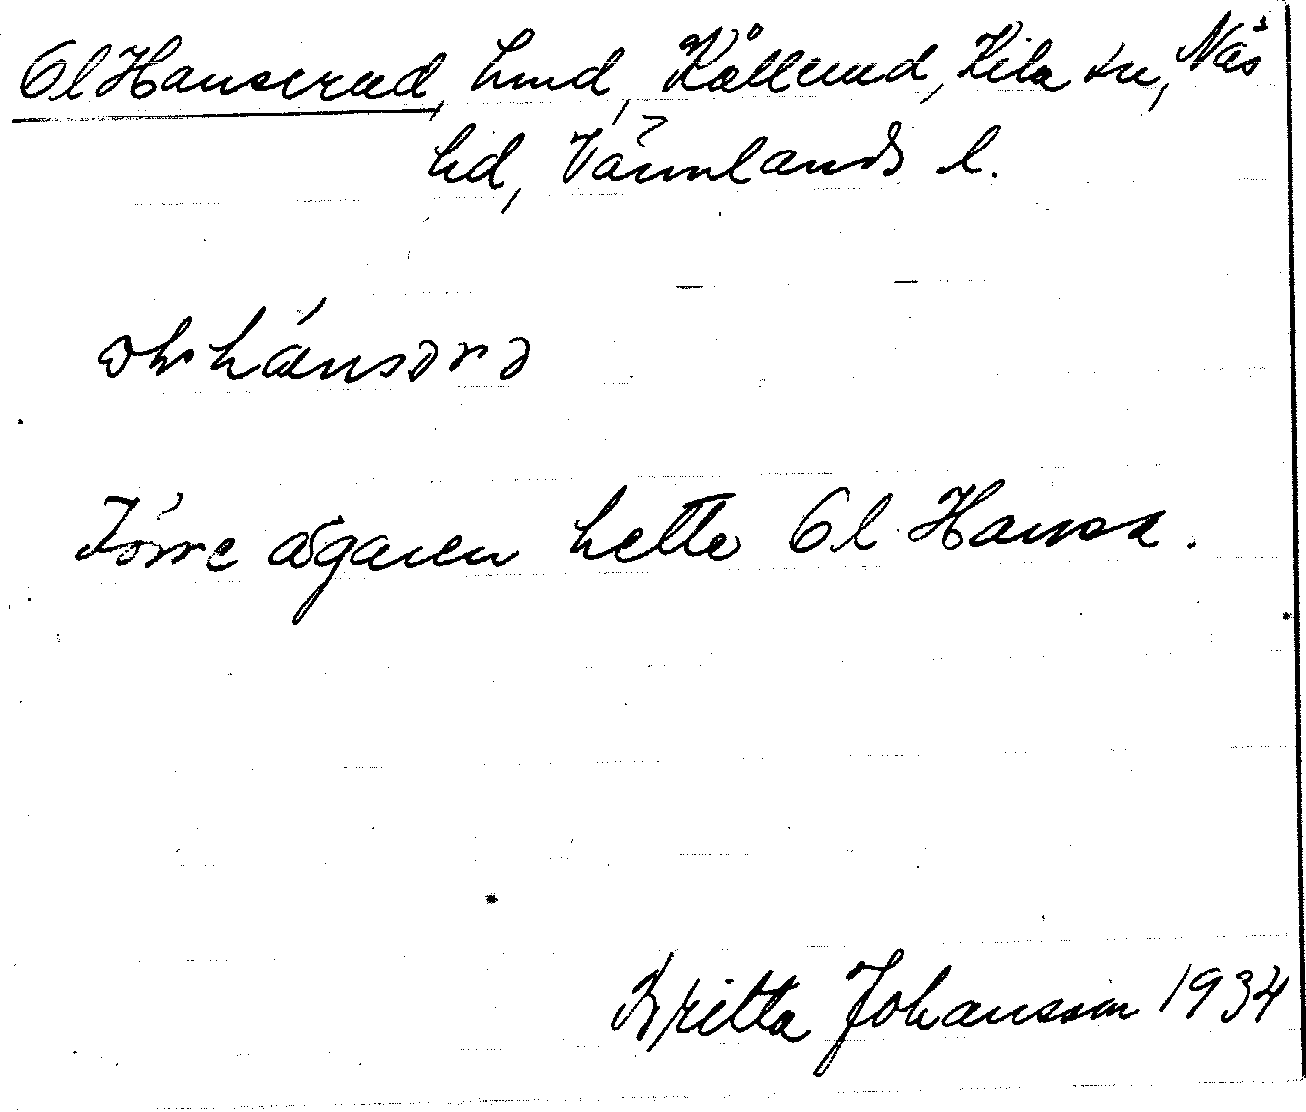 Ol Hanserud, hmd, Källerud, Kila sn, Näs
hd, Värmlands l.
Förre ägaren hette Ol Hansa.
Britta Johansson 1934